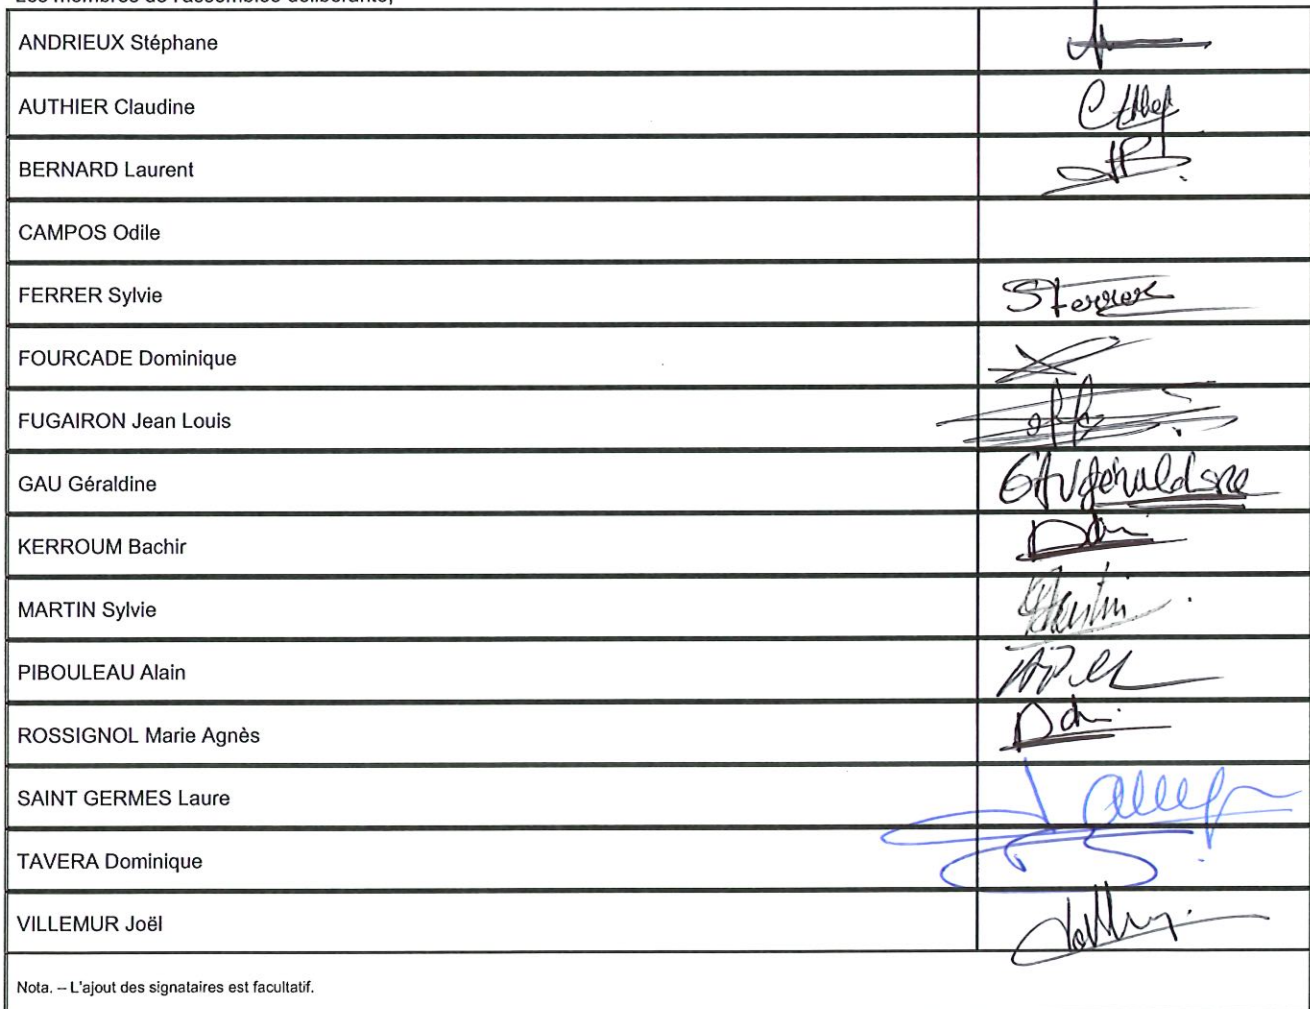 Les membres de l'assemblée délibérante,
ANDRIEUX Stéphane
AUTHIER Claudine
BERNARD Laurent
CAMPOS Odile
FERRER Sylvie
SFerrer
FOURCADE Dominique
FUGAIRON Jean Louis
GAU Géraldine
GAU Géraldine
KERROUM Bachir
MARTIN Sylvie
PIBOULEAU Alain
ROSSIGNOL Marie Agnès
SAINT GERMES Laure
TAVERA Dominique
VILLEMUR Joël
Nota. – L'ajout des signataires est facultatif.